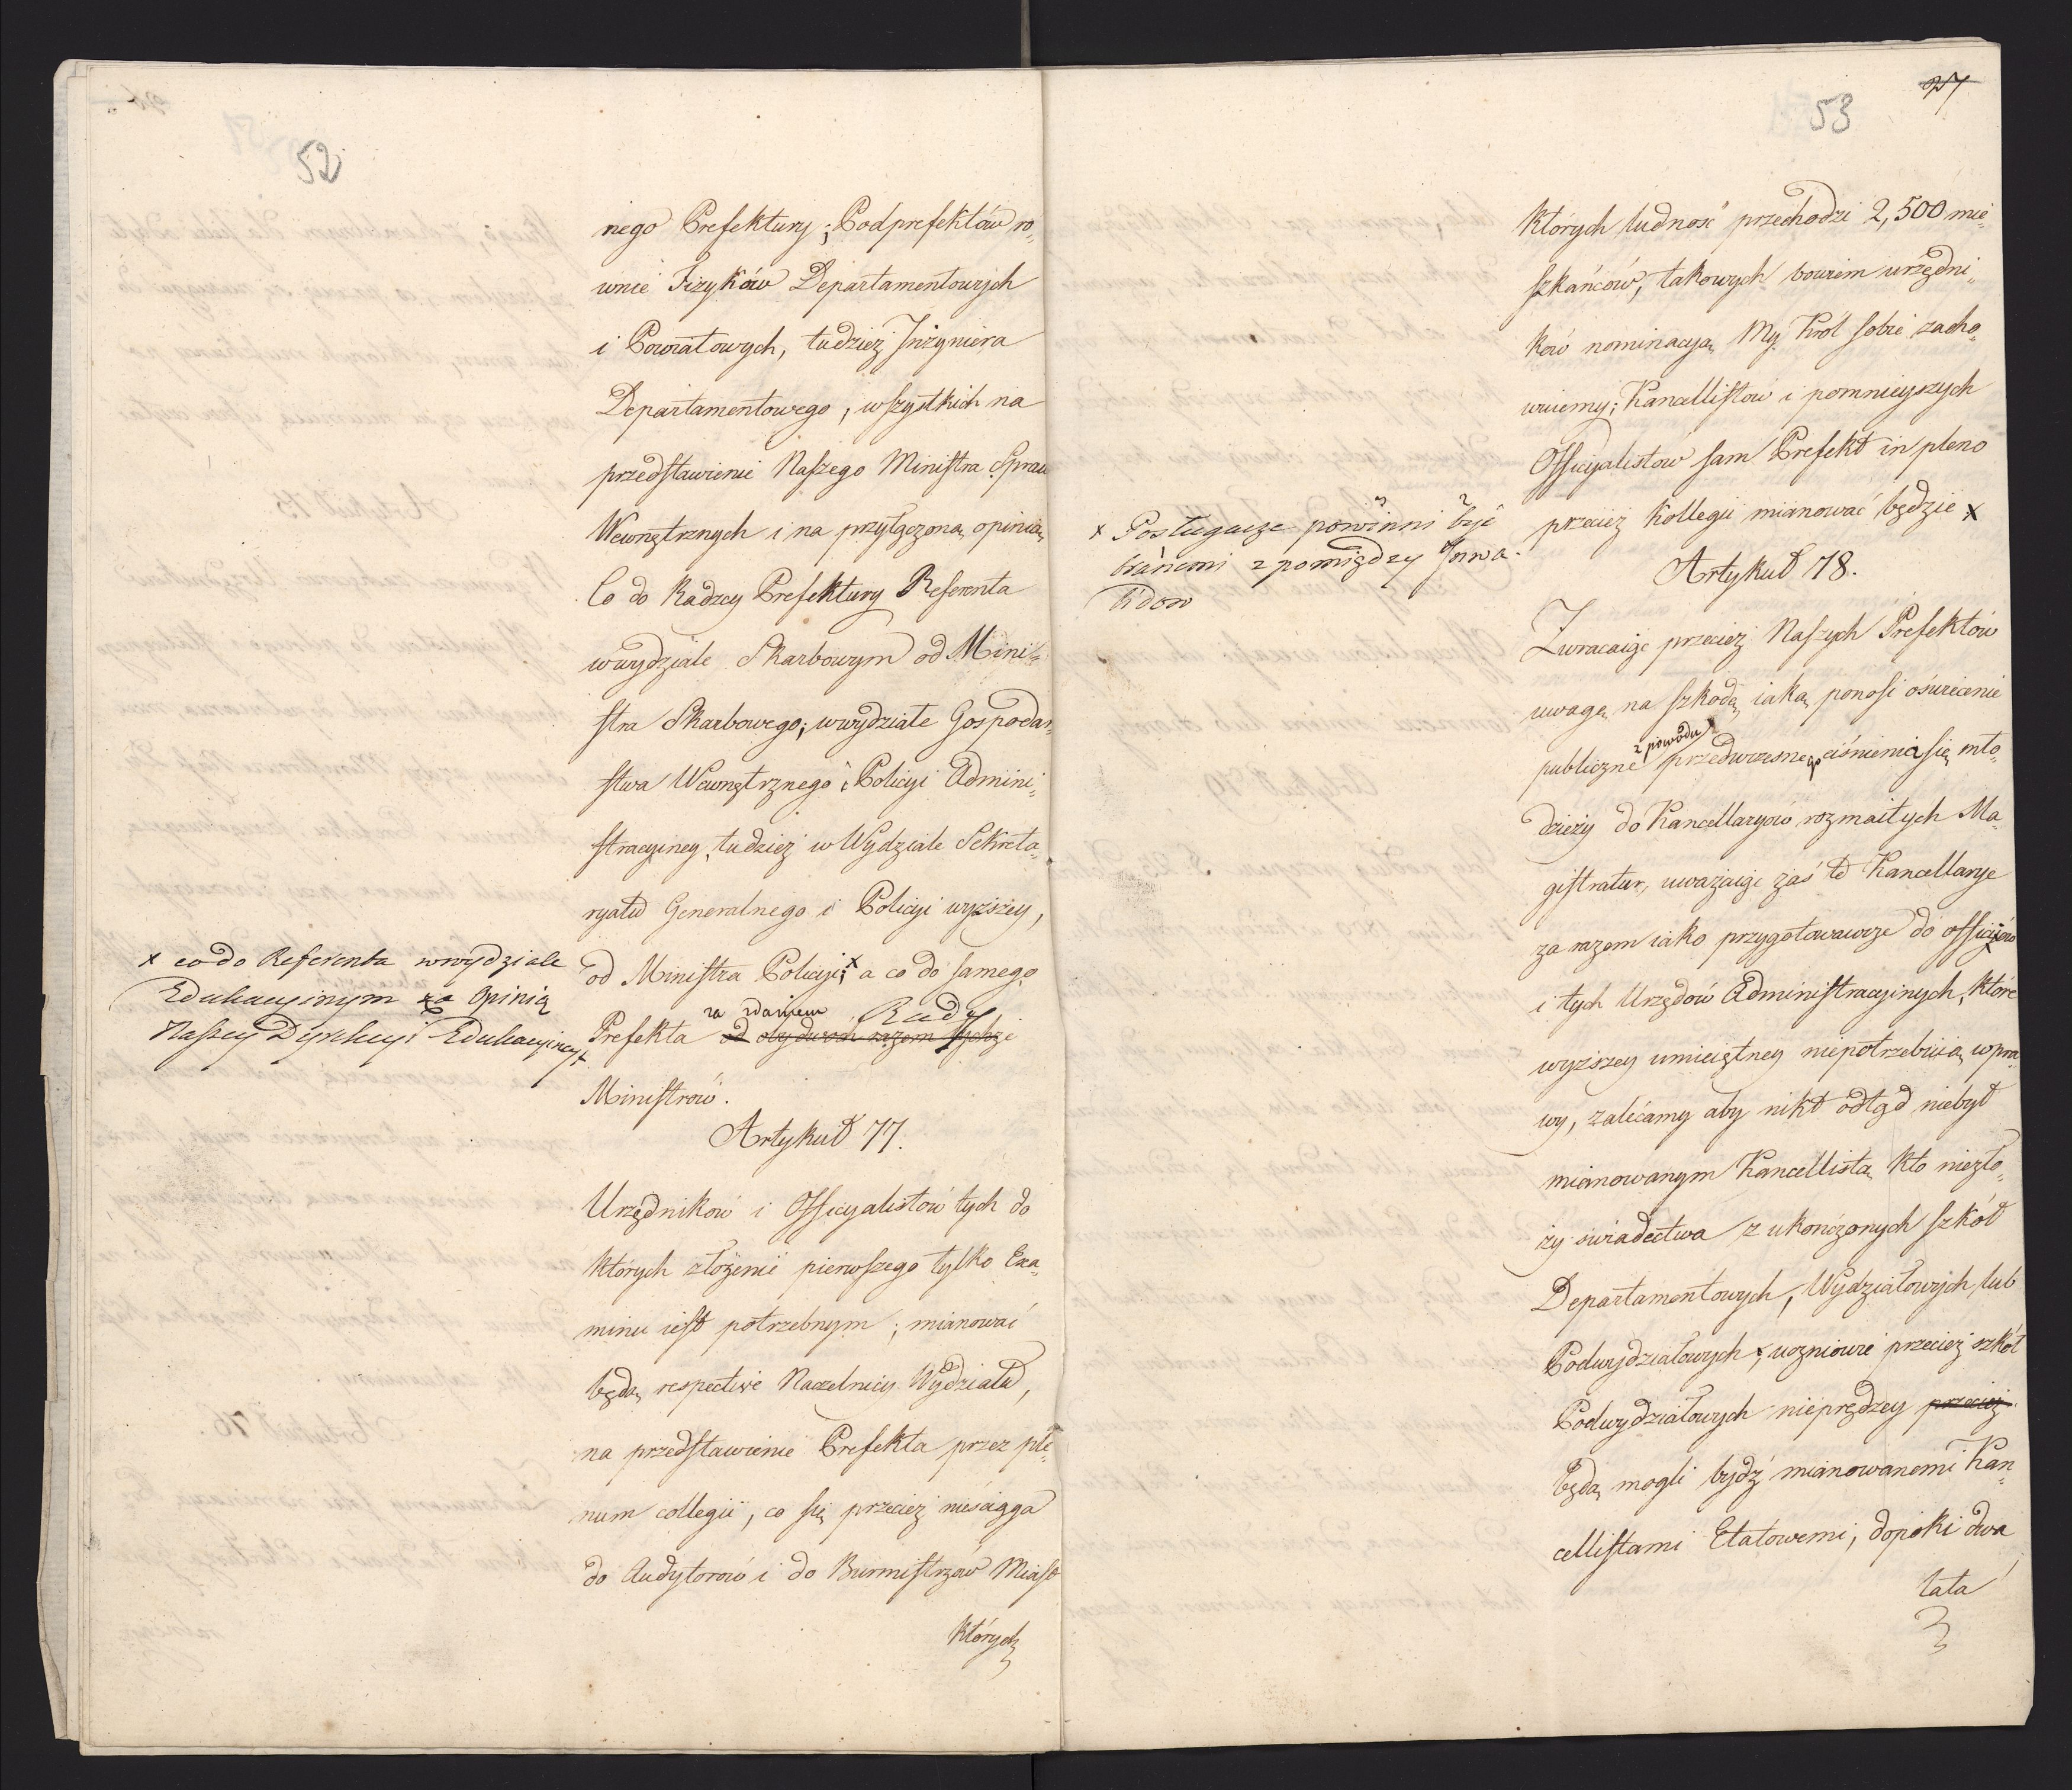 52
nego Prefektury; Podprefektów ro„
wnie Fizyków Departamentowych
i Powiatowych, tudzież Inżyniera
Departamentowego, wszystkich na
przedstawienie Naszego Ministra Spraw
Wewnętrznych i na przyłączoną opinią,
Co do Radzcy Prefektury Referenta
w wydziale Skarbowym od Mini„
stra Skarbowego; w wydziale Gospodar„
stwa Wewnętrznego i Policyi Admini„
stracyiney, tudzież w Wydziale Sekreta„
ryatu Generalnego i Policyi wyższey,
od Ministra Policyi; x a co do samego
za zdaniem Rady
Prefekta od obydwóch razem tychże
Ministrów.
x co do Referenta w wydziale
Edukacyinym za Opinią
Naszey Dyrekcyi Edukacyiney x
Artykuł 77.
Urzędników i Officyalistów tych do
których złożenie pierwszego tylko Exa„
minu iest potrzebnym; mianować
będą respective Naczelnicy Wydziału,
na przedstawienie Prefekta przez ple„
num collegii, co się przecież nieściąga
do Audytorów i do Burmistrzów Miast
których
27
53
których ludność przechodzi 2,500 mie„
szkańców, takowych bowiem urzędni„
ków nominacyą My Król sobie zacho„
wuiemy; Kancellistów i pomnieyszych
Officyalistów sam Prefekt in pleno
przecież Kollegii mianować będzie x
x Posługacze powinni 3 być 2
branemi z pomiędzy Inwa-
lidow
Artykuł 78.
Zwracaiąc przecież Naszych Prefektów
uwagę na szkodę, iaką ponosi oświecenie
z powodu
publiczne przedwczesnego ciśnienia się mło„
dzieży do Kancellaryów rozmaitych Ma„
gistratur, uważaiąc zaś te Kancellarye
za razem iako przygotowawcze do officyów
i tych Urzędów Administracyinych, które
wyższey umieiętney niepotrzebuią wpra„
wy, zalecamy aby nikt odtąd niebył
mianowanym Kancellistą, kto niezło„
ży świadectwa z ukończonych szkół
Departamentowych, Wydziałowych lub
Podwydziałowych, uczniowie przecież szkół
Podwydziałowych nieprędzey przecież
będą mogli bydź mianowanemi Kan„
cellistami Etatowemi, dopóki dwa
lata